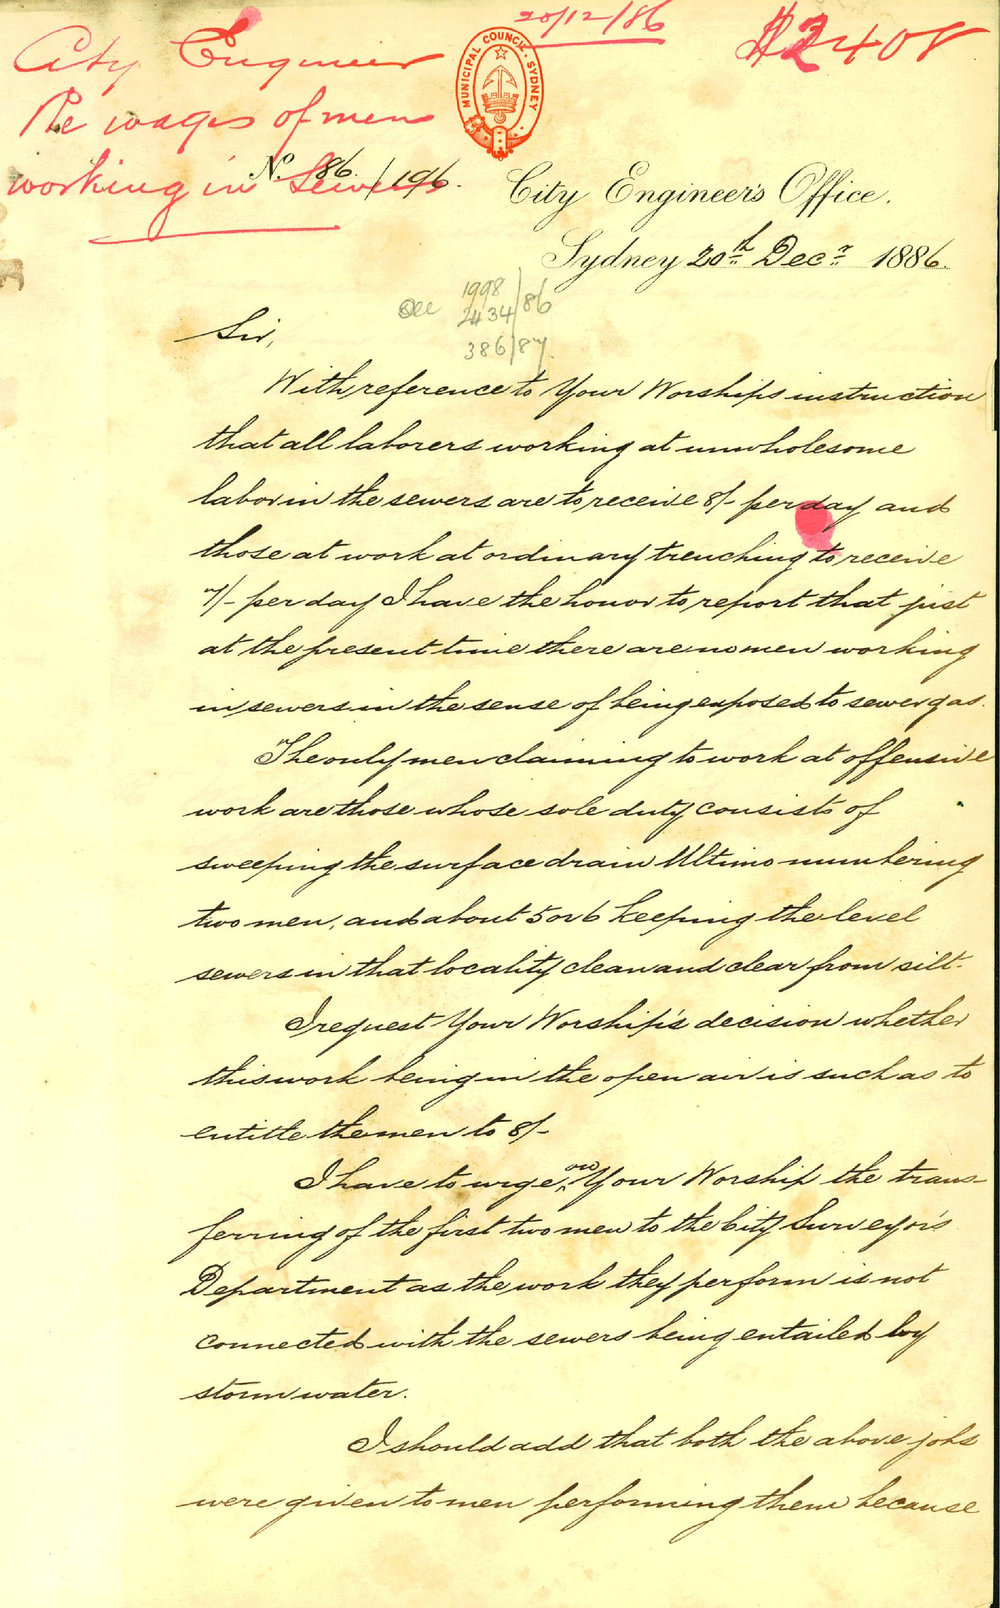 20/12/86
City Engineer
Re wages of men
working in Sewers
MUNICIPAL COUNCIL SYDNEY
No. 86/196.
City Engineer's Office.
Sydney 20th Decr 1886.
See 1998
2434/86
386/87
Sir,
With reference to Your Worships instruction
that all laborers working at unwholesome
labor in the sewers are to receive 8/- per day and
those at work at ordinary trenching to receive
7/- per day I have the honor to report that just
at the present time there are no men working
in sewers in the sense of being exposed to sewer gas.
The only men claiming to work at offensive
work are those whose sole duty consists of
sweeping the surface drain Ultimo numbering
two men, and about 5 or 6 keeping the level
sewers in that locality clean and clear from silt.
I request Your Worship's decision whether
this work being in the open air is such as to
entitle the men to 8/-
I have to urge on Your Worship the trans-
ferring of the first two men to the City Surveyor's
Department as the work they perform is not
connected with the sewers being entailed by
storm water.
I should add that both the above jobs
were given to men performing them because